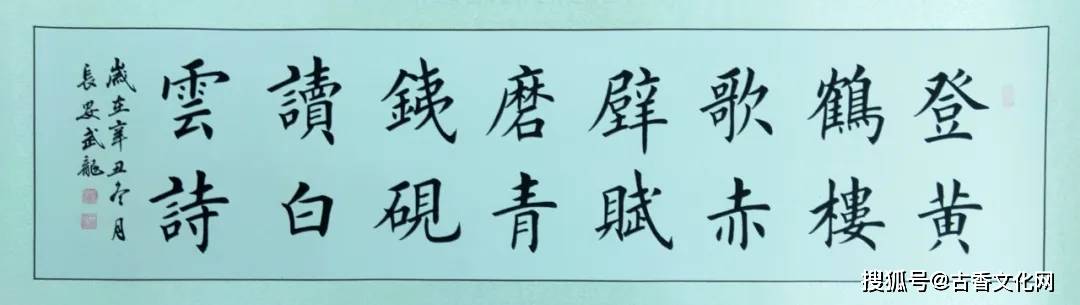 登黄
鶴樓
歌赤
壁賦
磨青
銕硯
讀白
雲詩
歲在辛丑冬月
長安武龍
搜狐号@古香文化网